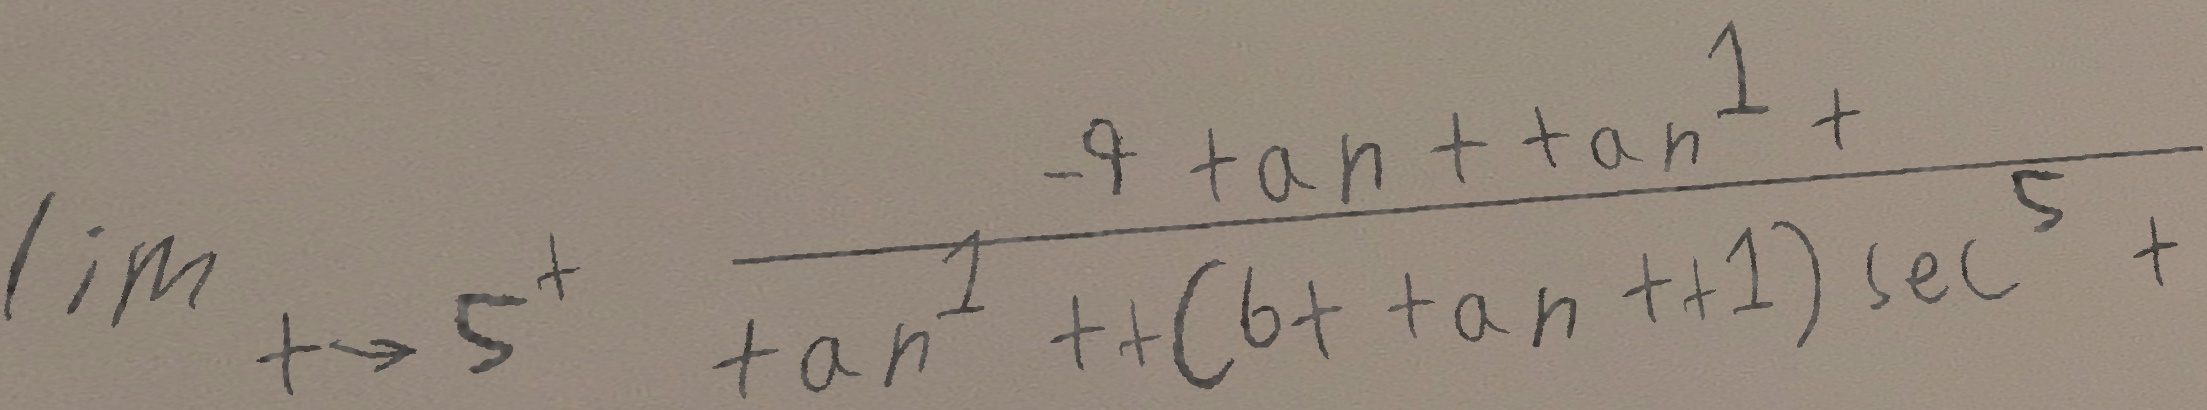 \lim_{t \to 5^+} \frac{-9 \tan t \tan^1 t}{\tan^1 t + (6t \tan t + 1) \sec^5 t}